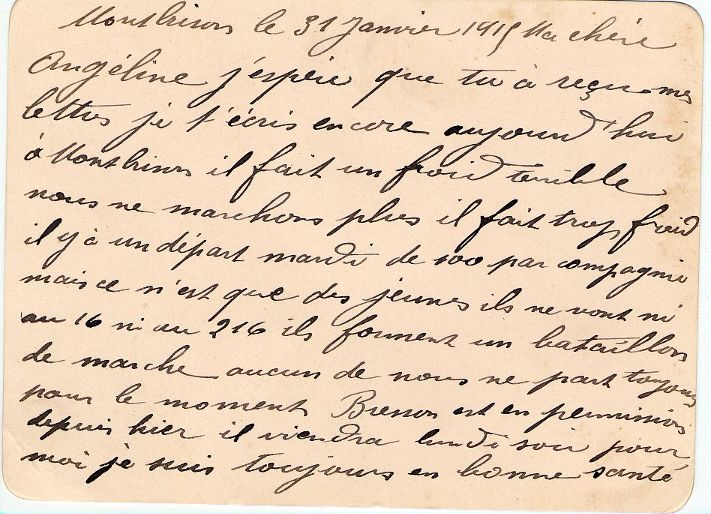 Montbrison le 31 Janvier 1915 Ma chère
Angéline j'espère que tu à reçu mes
lettres je t'écris encore aujourd'hui
à Montbrison il fait un froid terrible
nous ne marchons plus il fait trop froid
il y à un départ mardi de 100 par compagnie
mais ce n'est que des jeunes ils ne vont ni
au 16 ni au 216 ils forment un bataillon
de marche aucun de nous ne part toujours
pour le moment Bresson est en permission
depuis hier il viendra lundi soir pour
moi je suis toujours en bonne santé